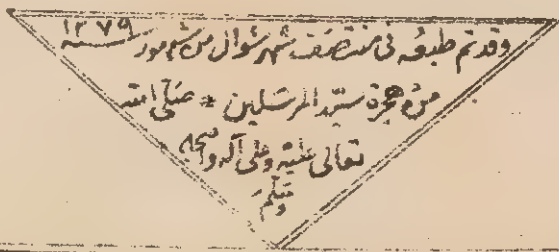 وقد تم طبعه في منتصف شهر شوال من شهور ١٣٧٩
من هجرة سيد المرسلين * صلى الله
تعالى عليه وعلى آله وصحبه
وسلم